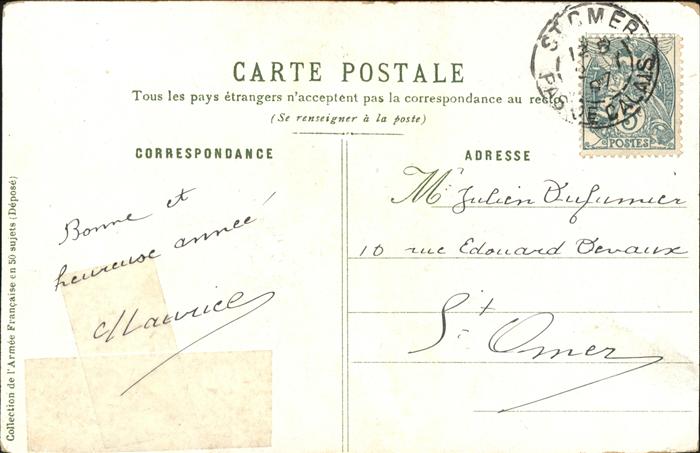 CARTE POSTALE
Tous les pays étrangers n'acceptent pas la correspondance au recto
(Se renseigner à la poste)
CORRESPONDANCE
Bonne et
heureuse année
Maurice
Collection de l'Armée Française en 50 sujets (Déposé)
ADRESSE
Mr Julien Dufumier
10 rue Edouard Devaux
St Omer
ST OMER
PAS DE CALAIS
5
POSTES